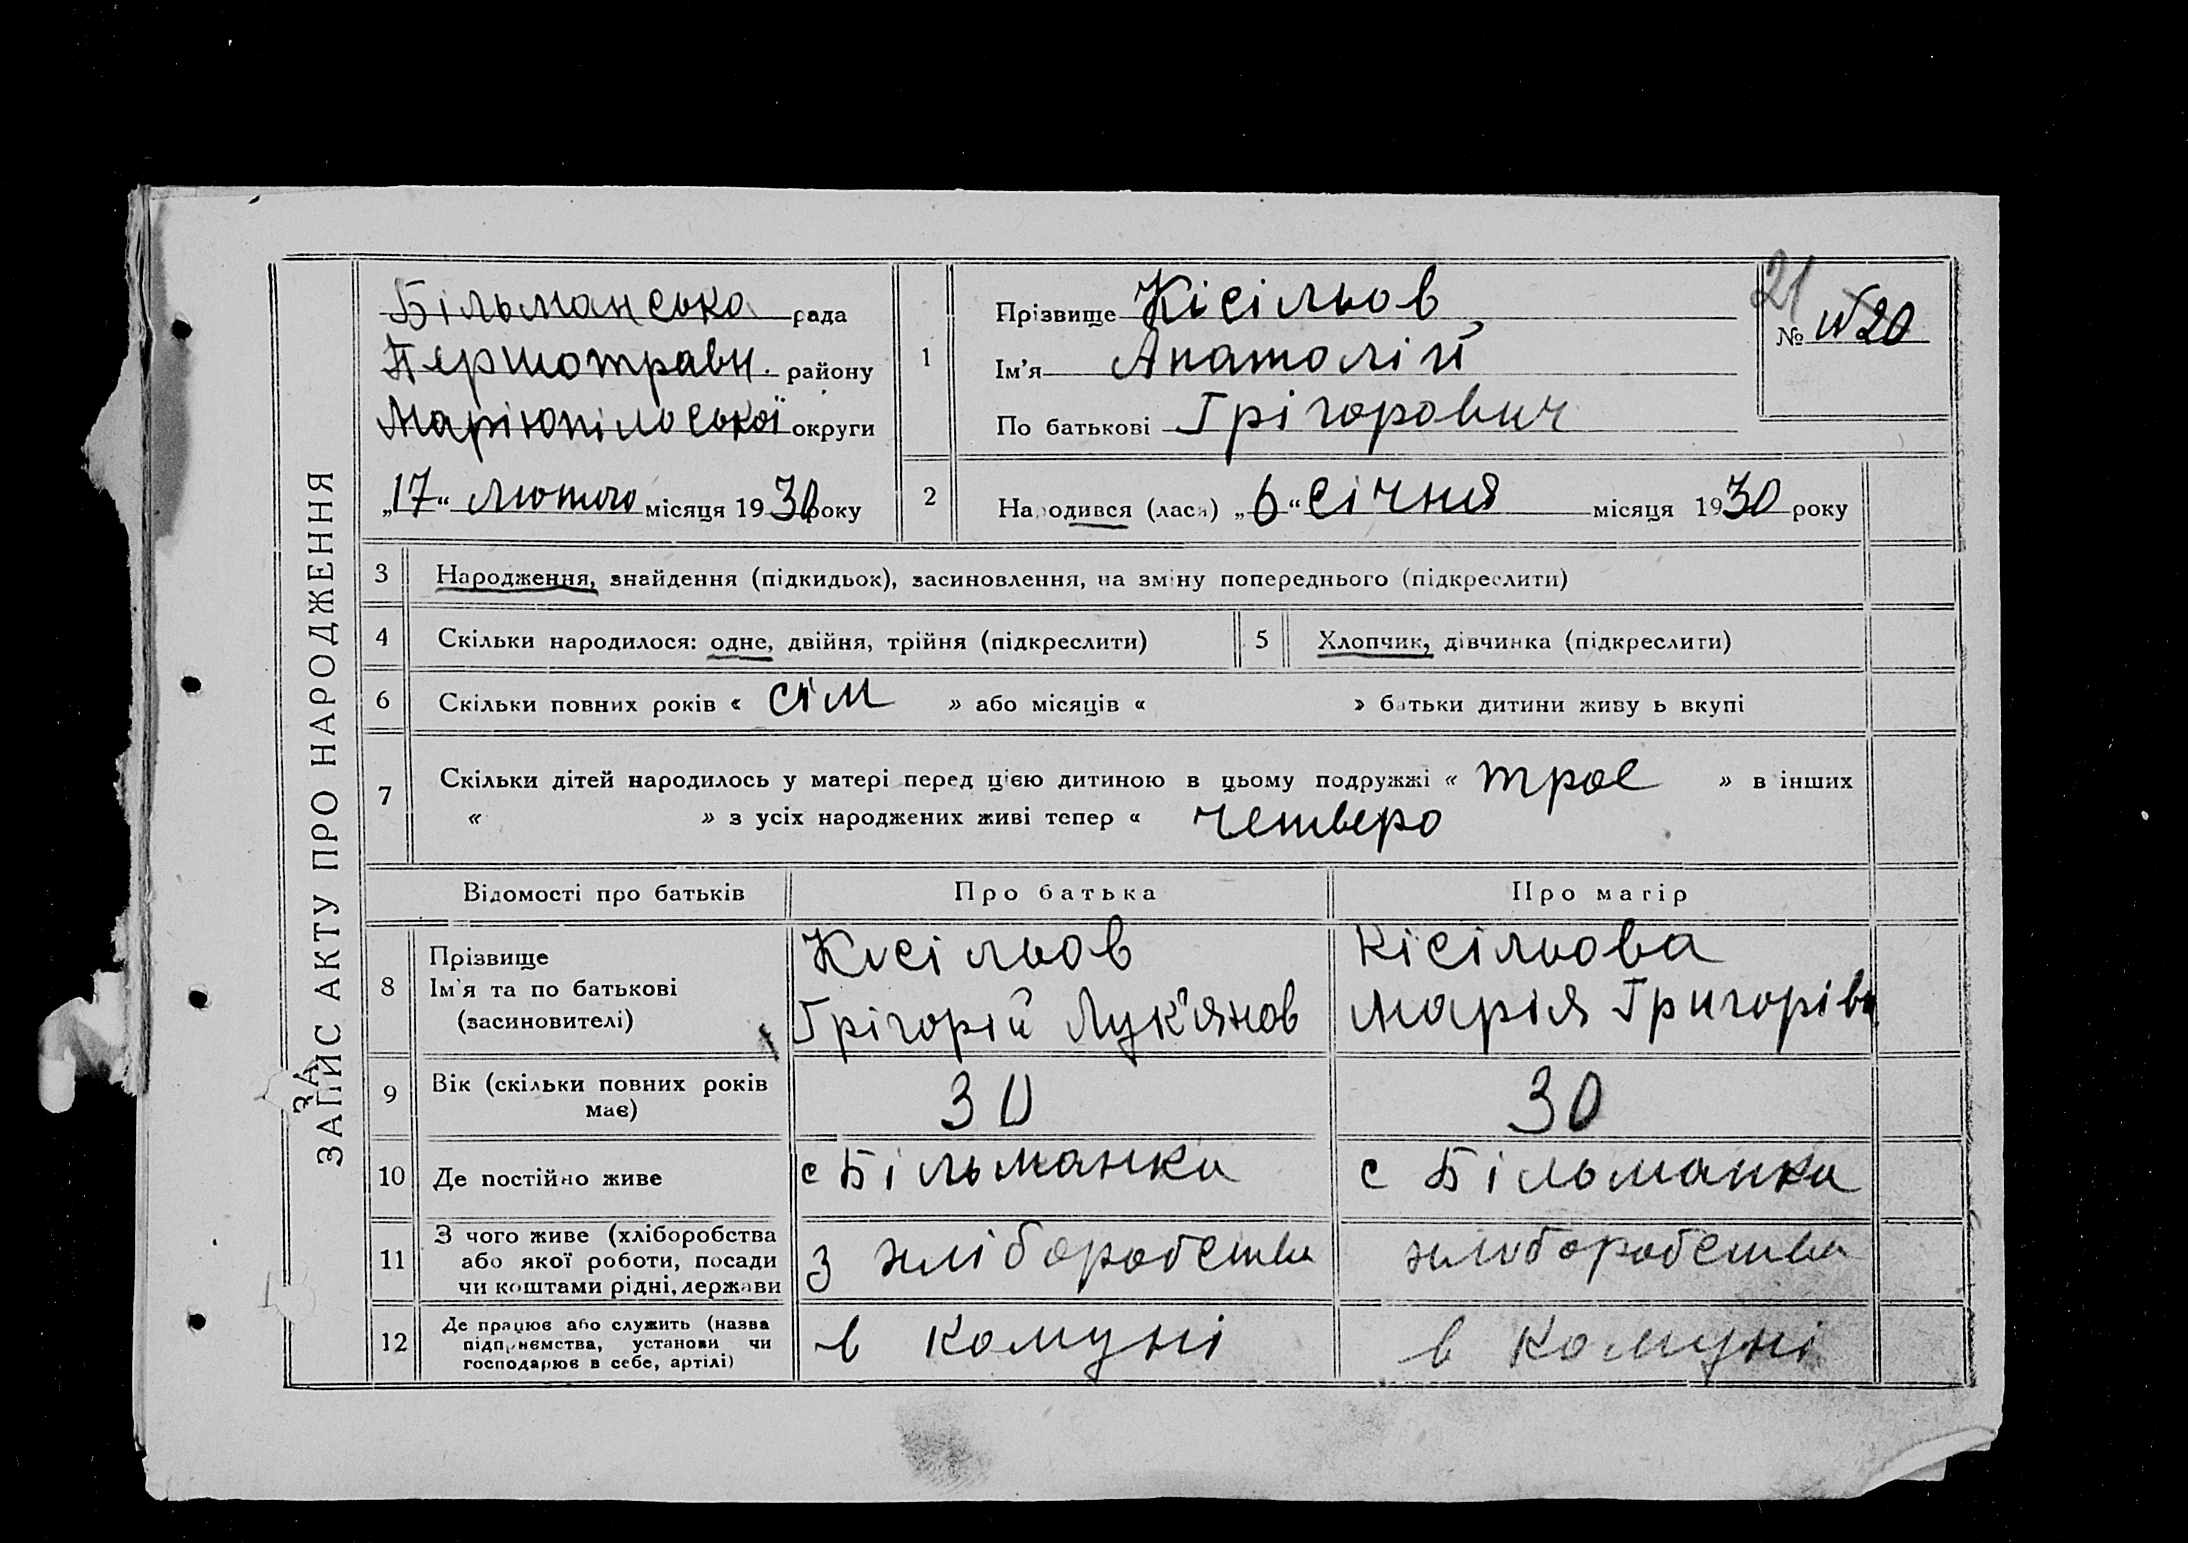 ЗАПИС АКТУ ПРО НАРОДЖЕННЯ
Більманська рада
Першотравн. району
Маріюпільської округи
„17“ Лютого місяця 1930 року
1
Прізвище Кісільов
Ім'я Анатолій
По батькові Грігорович
21
№ №20
2
Народився (лася) „6“ січня місяця 1930 року
3 Народження, знайдення (підкидьок), засиновлення, на зміну попереднього (підкреслити)
4 Скільки народилося: одне, двійня, трійня (підкреслити) 5 Хлопчик, дівчинка (підкреслити)
6 Скільки повних років « сім » або місяців « » батьки дитини живу ь вкупі
7 Скільки дітей народилось у матері перед цією дитиною в цьому подружжі « троє » в інших
« » з усіх народжених живі тепер « четверо
Відомості про батьків Про батька Про матір
8 Прізвище
Ім'я та по батькові
(засиновителі)
Кисільов
Грігорій Лук'янов
Кісільова
Марія Григорівн
9 Вік (скільки повних років
має)
30 30
10 Де постійно живе с Більманка с Більманка
11 З чого живе (хліборобства
або якої роботи, посади
чи коштами рідні, держави
з хліборобства хлиборобства
12 Де працює або служить (назва
підприємства, установи чи
господарює в себе, артілі)
в комуні в комуні